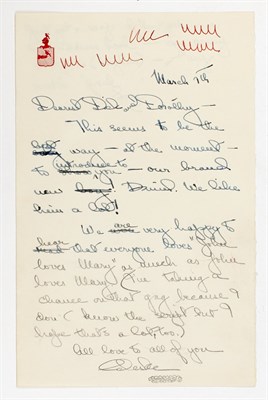 March 7th
Darel Dick & Dorothy –
This seems to be the
way – at the moment –
to introduce to you – our brand
new boy! David. We like
him a lot!
We are very happy to
hear that everyone loves "John
loves Mary" as much as John
loves Mary (I'm taking a
chance on that gag because I
don't know the script but I
hope that's a lot, too.)
All love to all of you